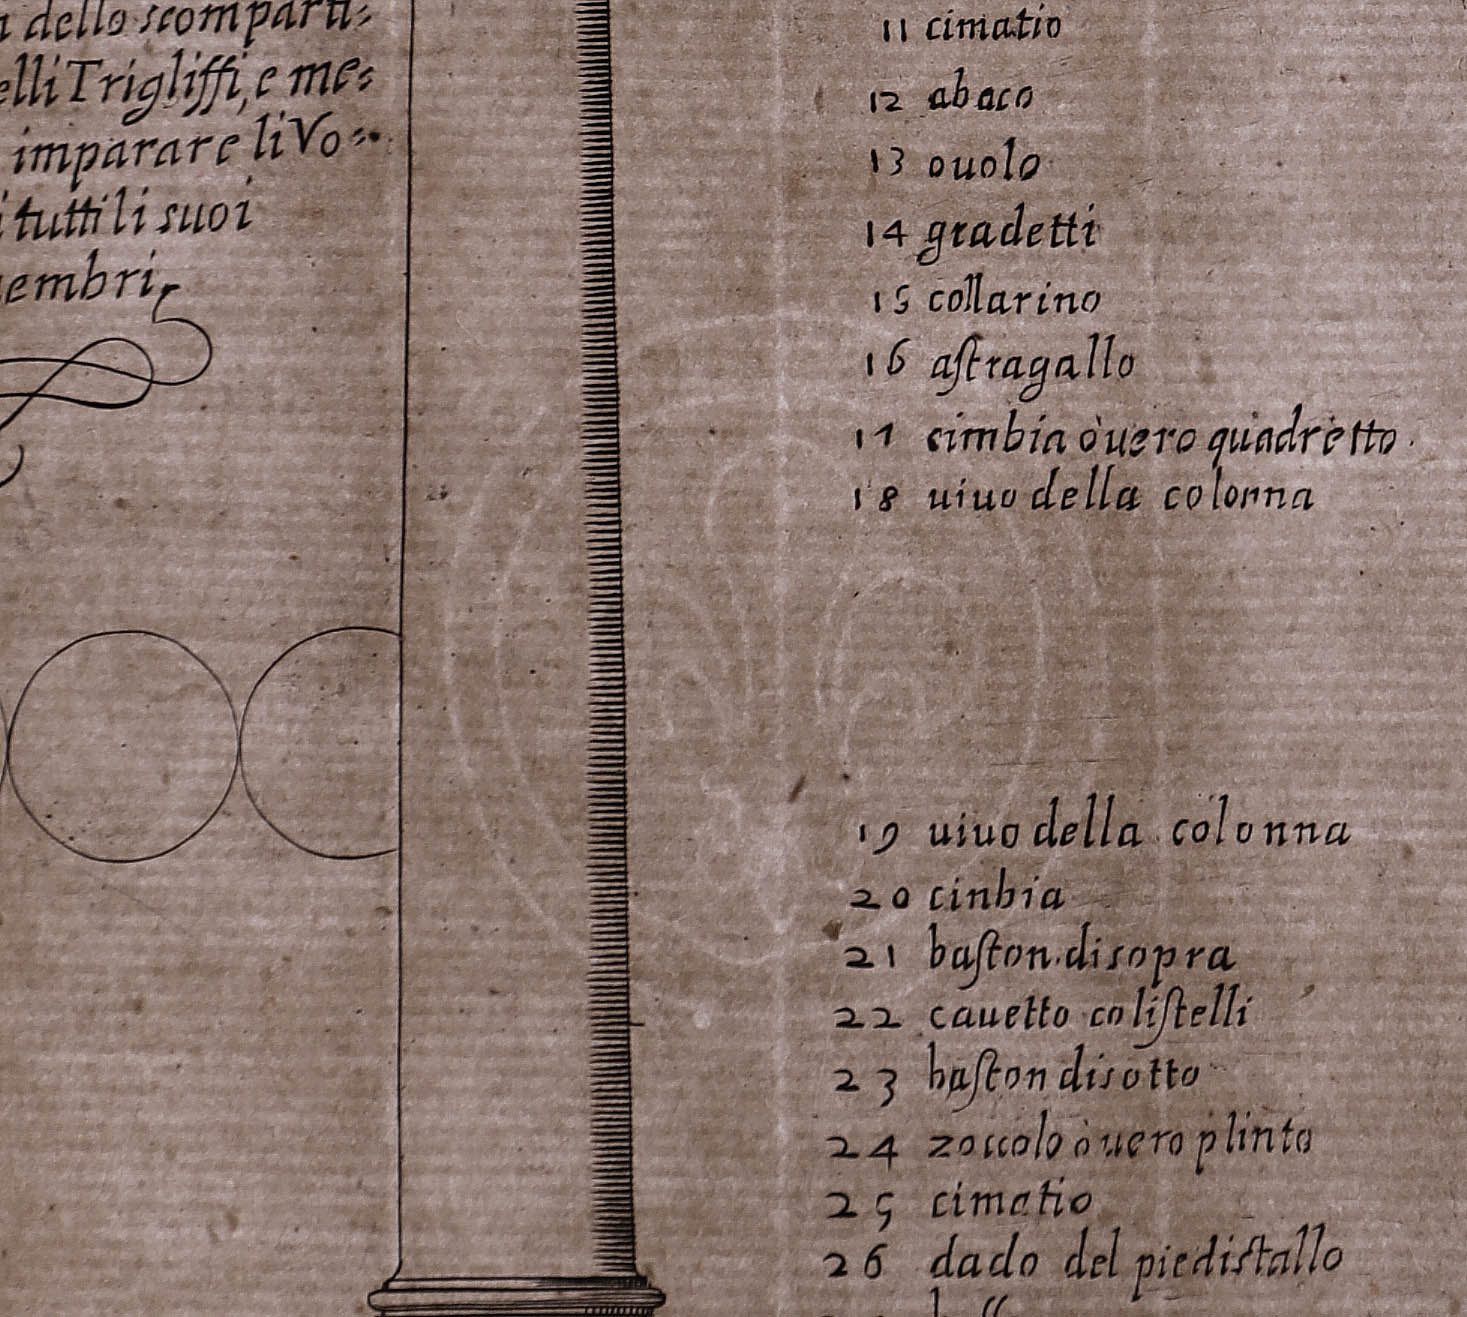 dello scomparti-
elli Trigliffi, e me-
imparare li Vo-
i tutti li suoi
embri,
11 cimatio
12 abaco
13 ouolo
14 gradetti
15 collarino
16 aſtragallo
17 cimbia ò uero quadretto.
18 uiuo della colonna
19 uiuo della colonna
20 cinbia
21 baſton di sopra
22 cauetto co liſtelli
23 baſton di sotto
24 zoccolo ò uero plinto
25 cimatio
26 dado del piediſtallo